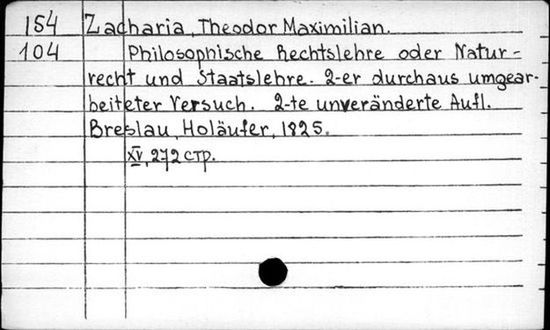 154 Zacharia, Theodor Maximilian.
104 Philosophische Rechtslehre oder Natur-
recht und Staatslehre. 2-er durchaus umgear-
beiteter Versuch. 2-te unveränderte Aufl.
Breslau, Holäufer, 1825.
XV, 272 стр.